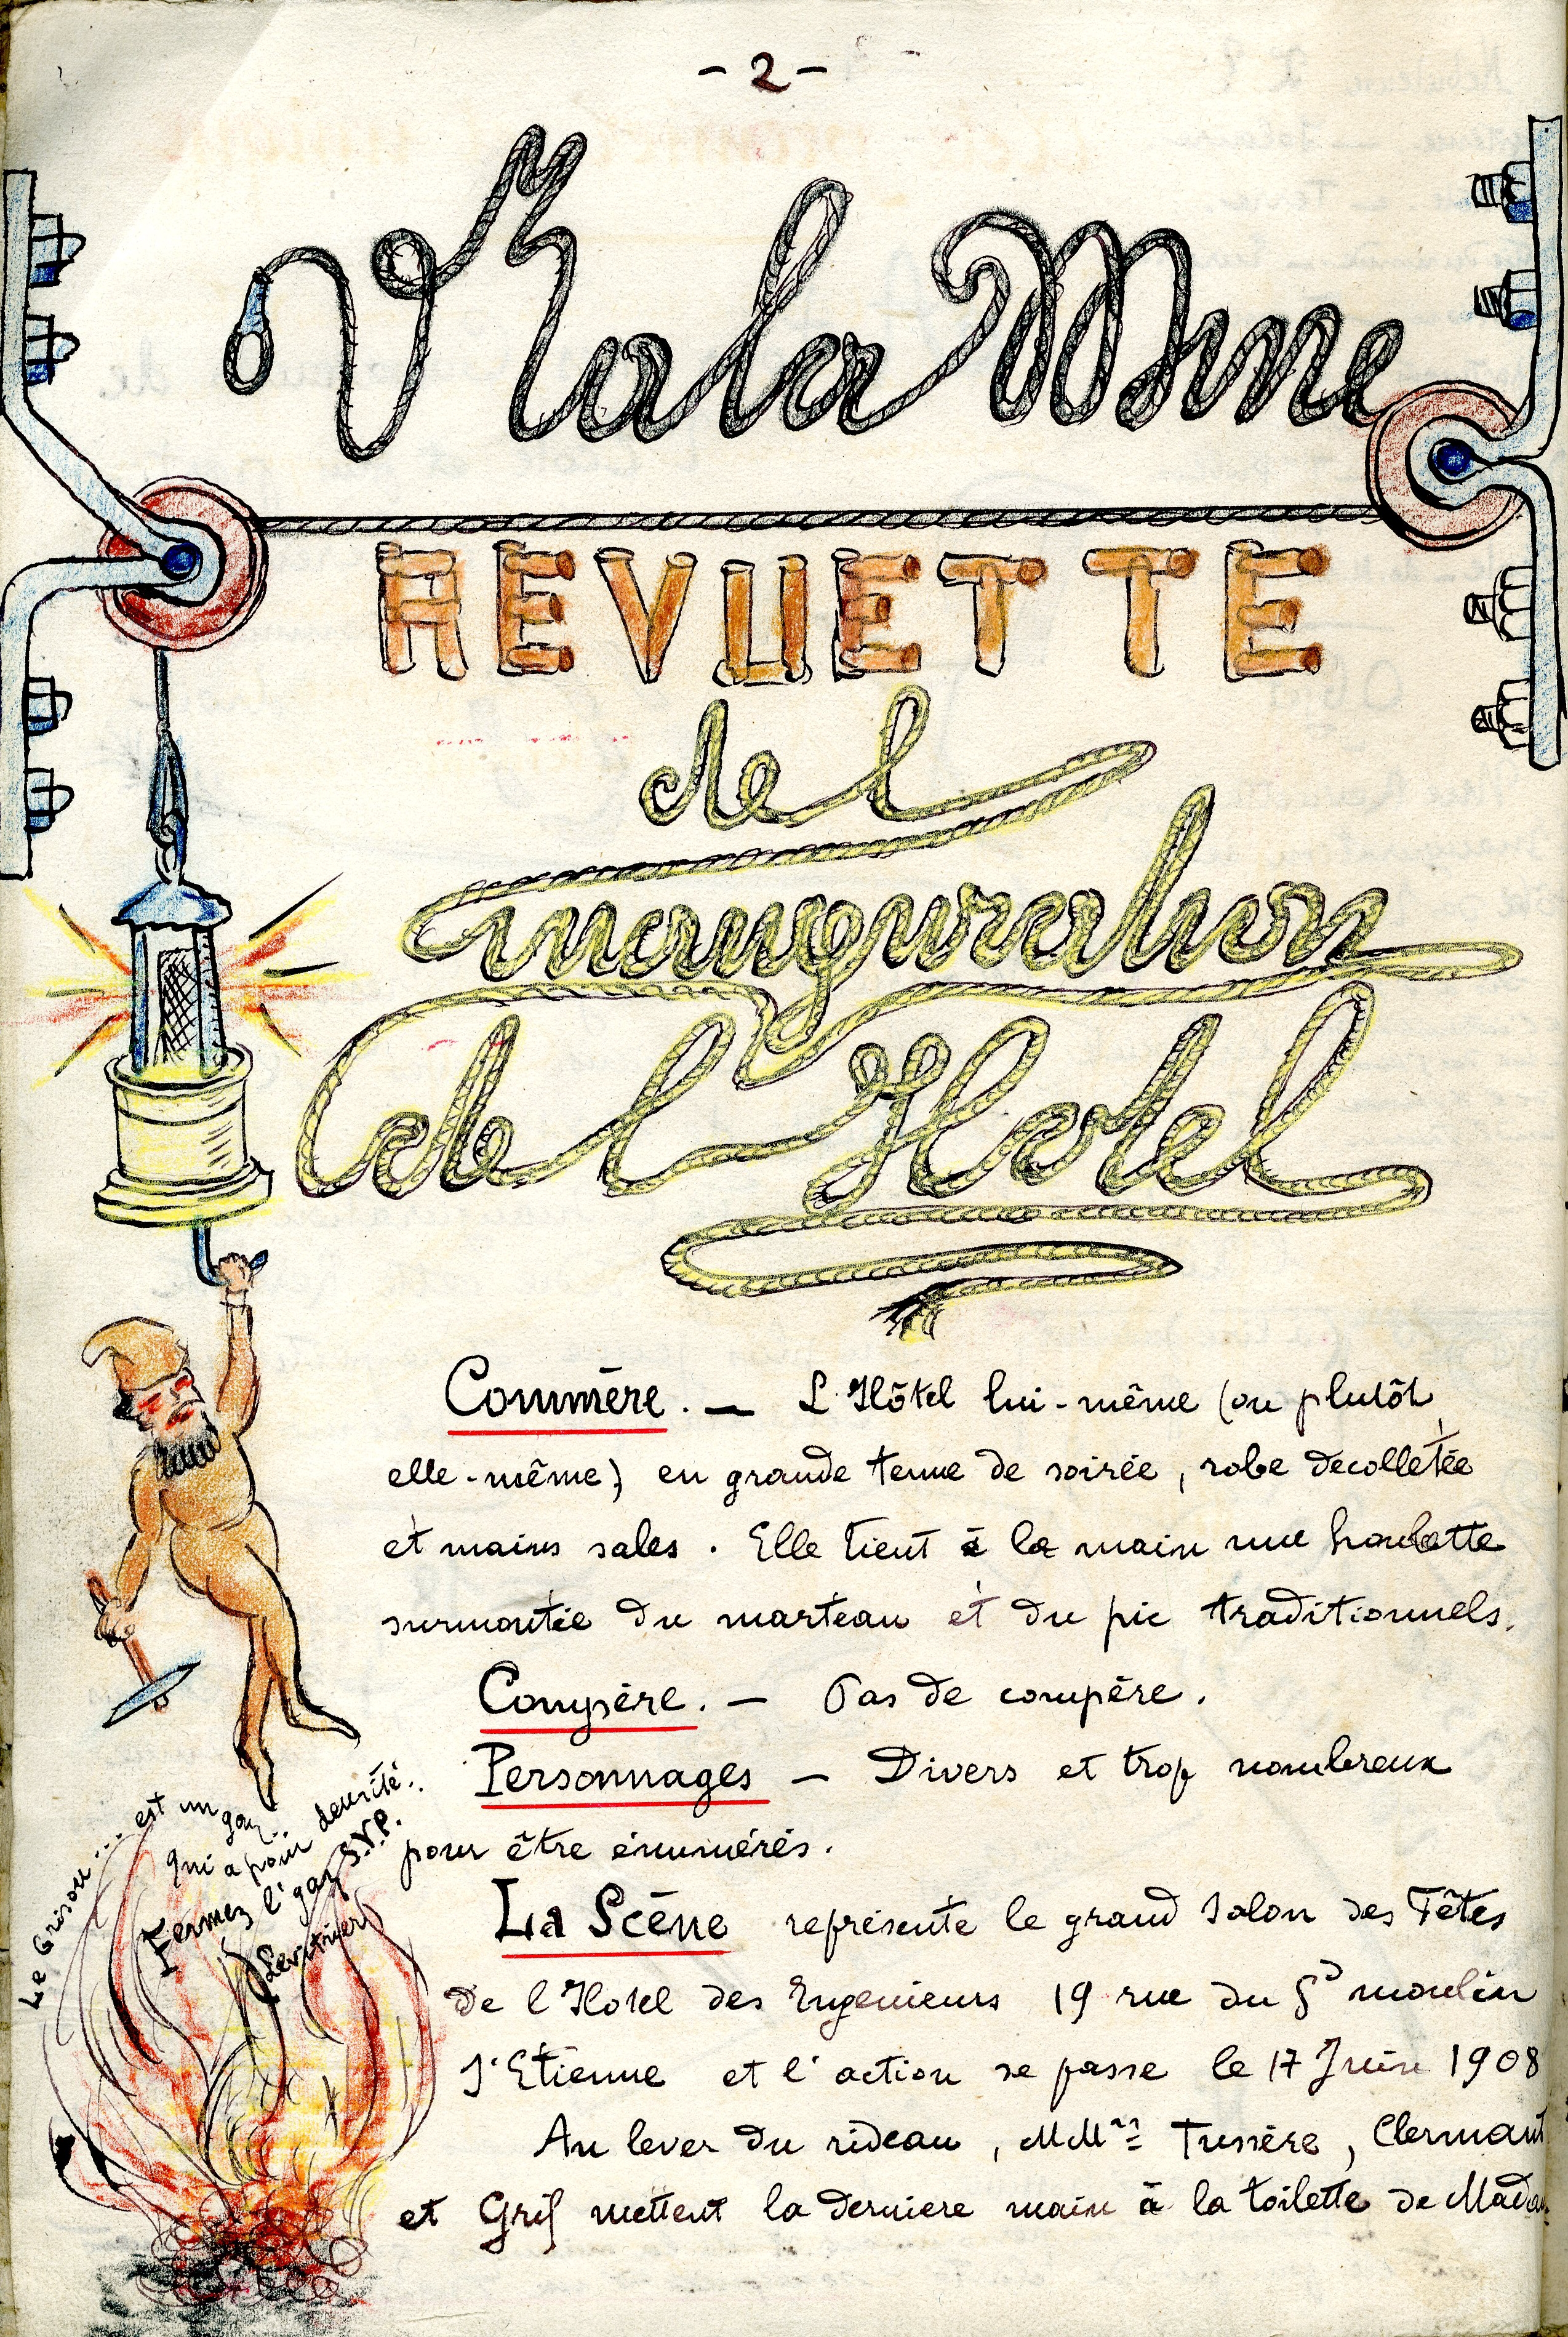 - 2 -
V'la la Mine
REVUETTE
de l
inauguration
de l'Hotel
Commère. — L'Hôtel lui-même (ou plutôt
elle-même) en grande tenue de soirée, robe decolletée
et mains sales. Elle tient à la main une houlette
surmontée du marteau et du pic traditionnels.
Compère. — Pas de compère.
Personnages — Divers et trop nombreux
pour être énumérés.
La Scène représente le grand Salon des Fêtes
de l'Hotel des Ingenieurs 19 rue du Gd moulin
St Etienne et l'action se passe le 17 Juin 1908
Au lever du rideau, MMrs Tussère, Clermont
et Grif mettent la derniere main à la toilette de
Le Grisou... est un gaz..
qui a pour densité..
Fermez l'gaz S.V.P.